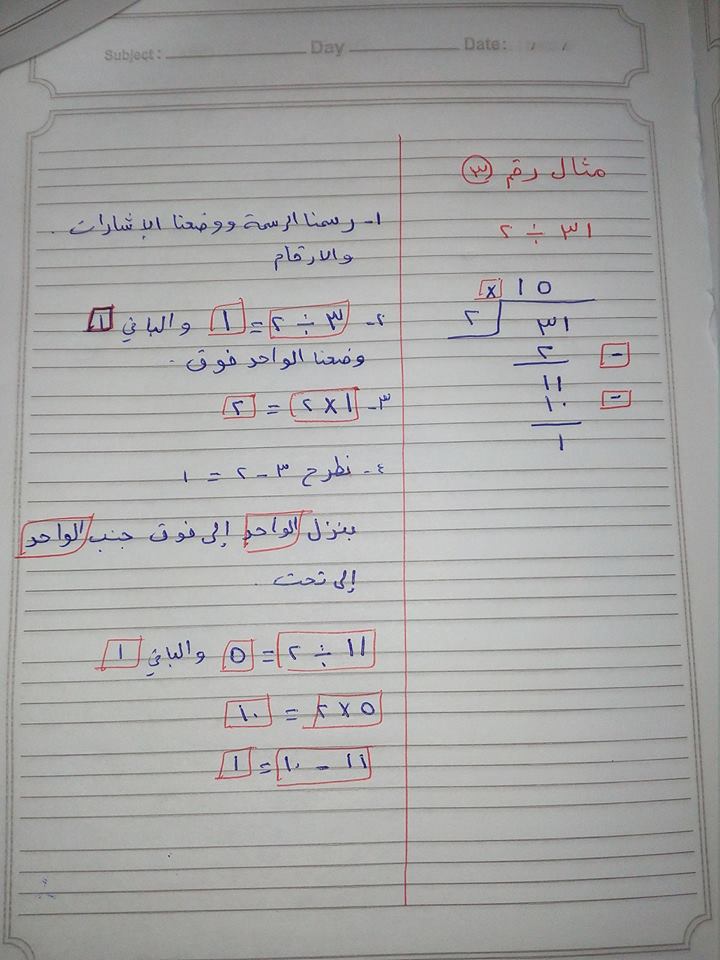 Subject : Day Date: / /
مثال رقم ٣
٣١ ÷ ٢
x ١٥
٢ ٣١
٢ -
١١
١٠ -
١
١- رسمنا الرسمة ووضعنا الإشارات .
والارقام
٢- ٣ ÷ ٢ = ١ والباقي ١
وضعنا الواحد فوق .
٣- ١ × ٢ = ٢
٤- نطرح ٣ - ٢ = ١
بنزل الواحد إلى فوق جنب الواحد
إلى تحت .
١١ ÷ ٢ = ٥ والباقي ١
٥ × ٢ = ١٠
١١ - ١٠ = ١